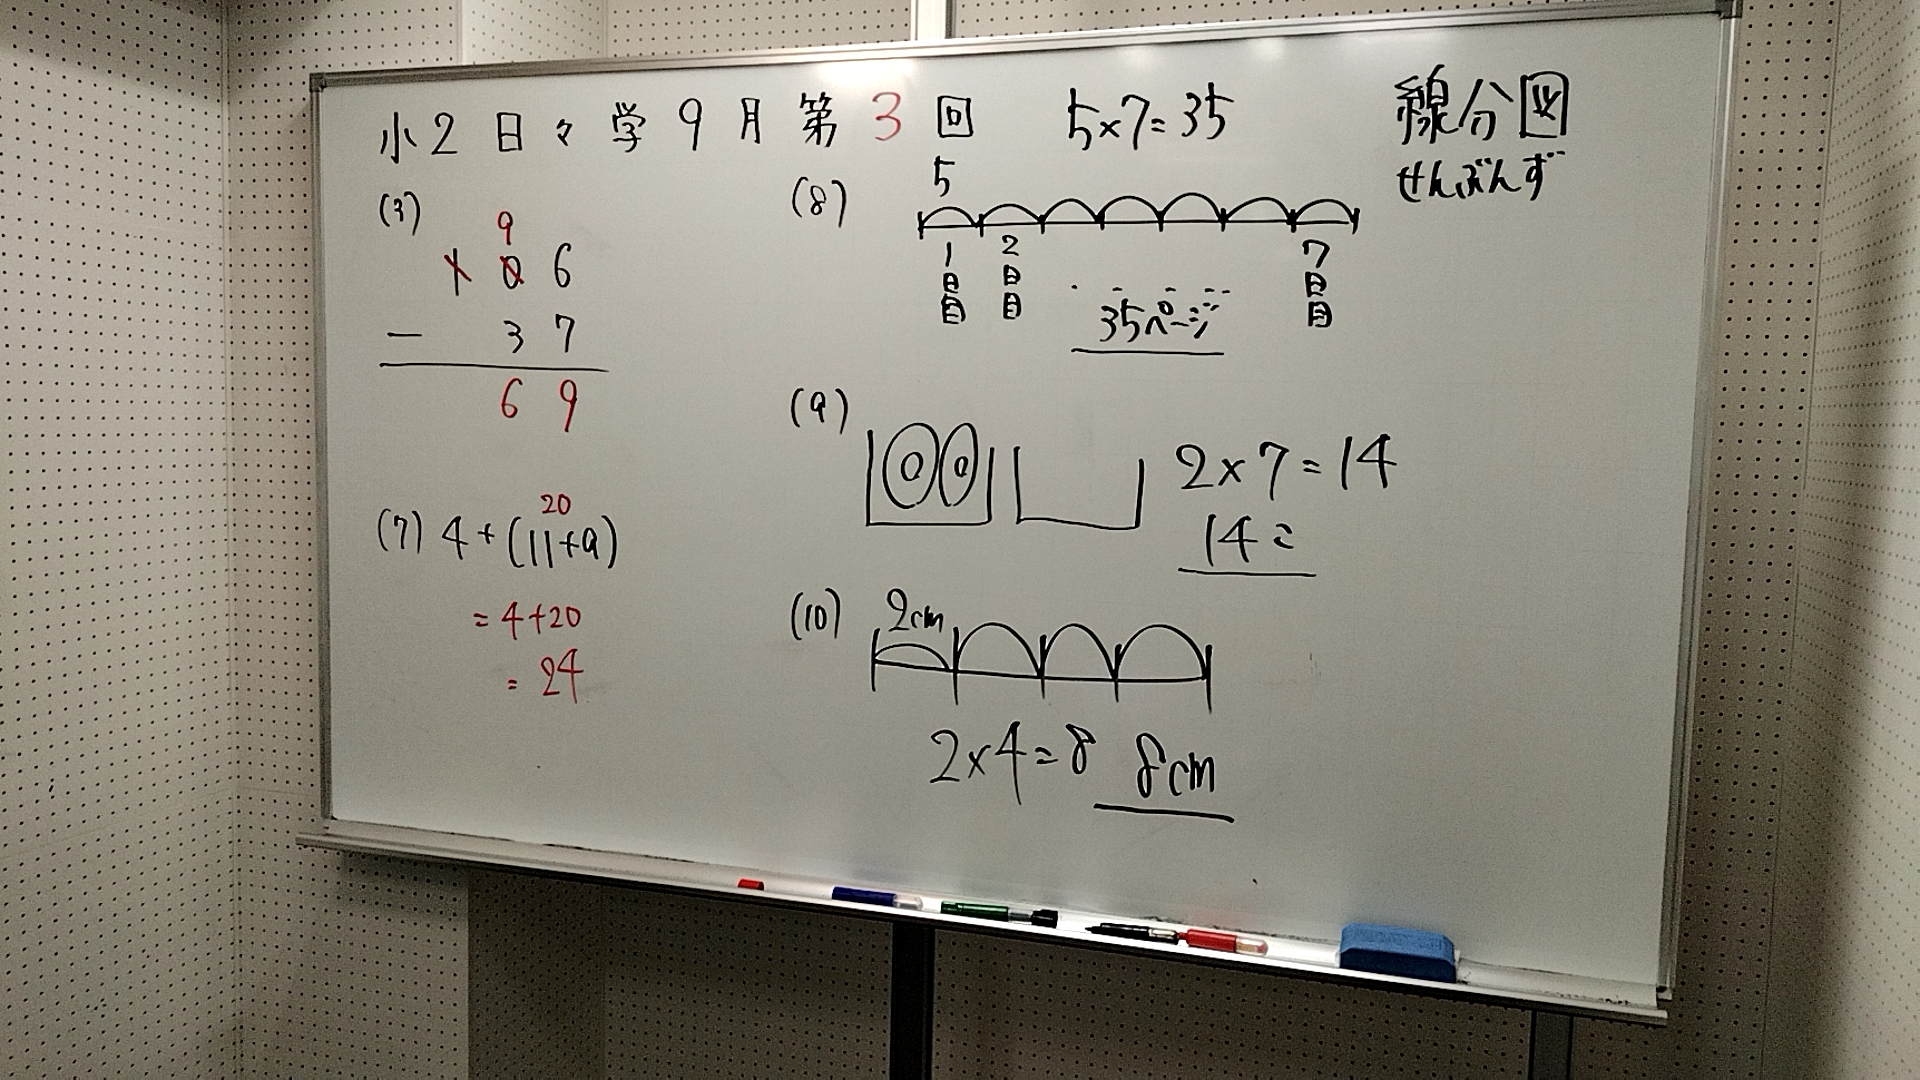 小2日々学9月第3回
(3)
9
106
- 37
69
(7) 4+(11+9)
20
=4+20
=24
5×7=35
(8)
5
1日目 2日目 ・ - - -- 7日目
35ページ
線分図
せんぶんず
(9)
2×7=14
14こ
(10) 2cm
2×4=8 8cm